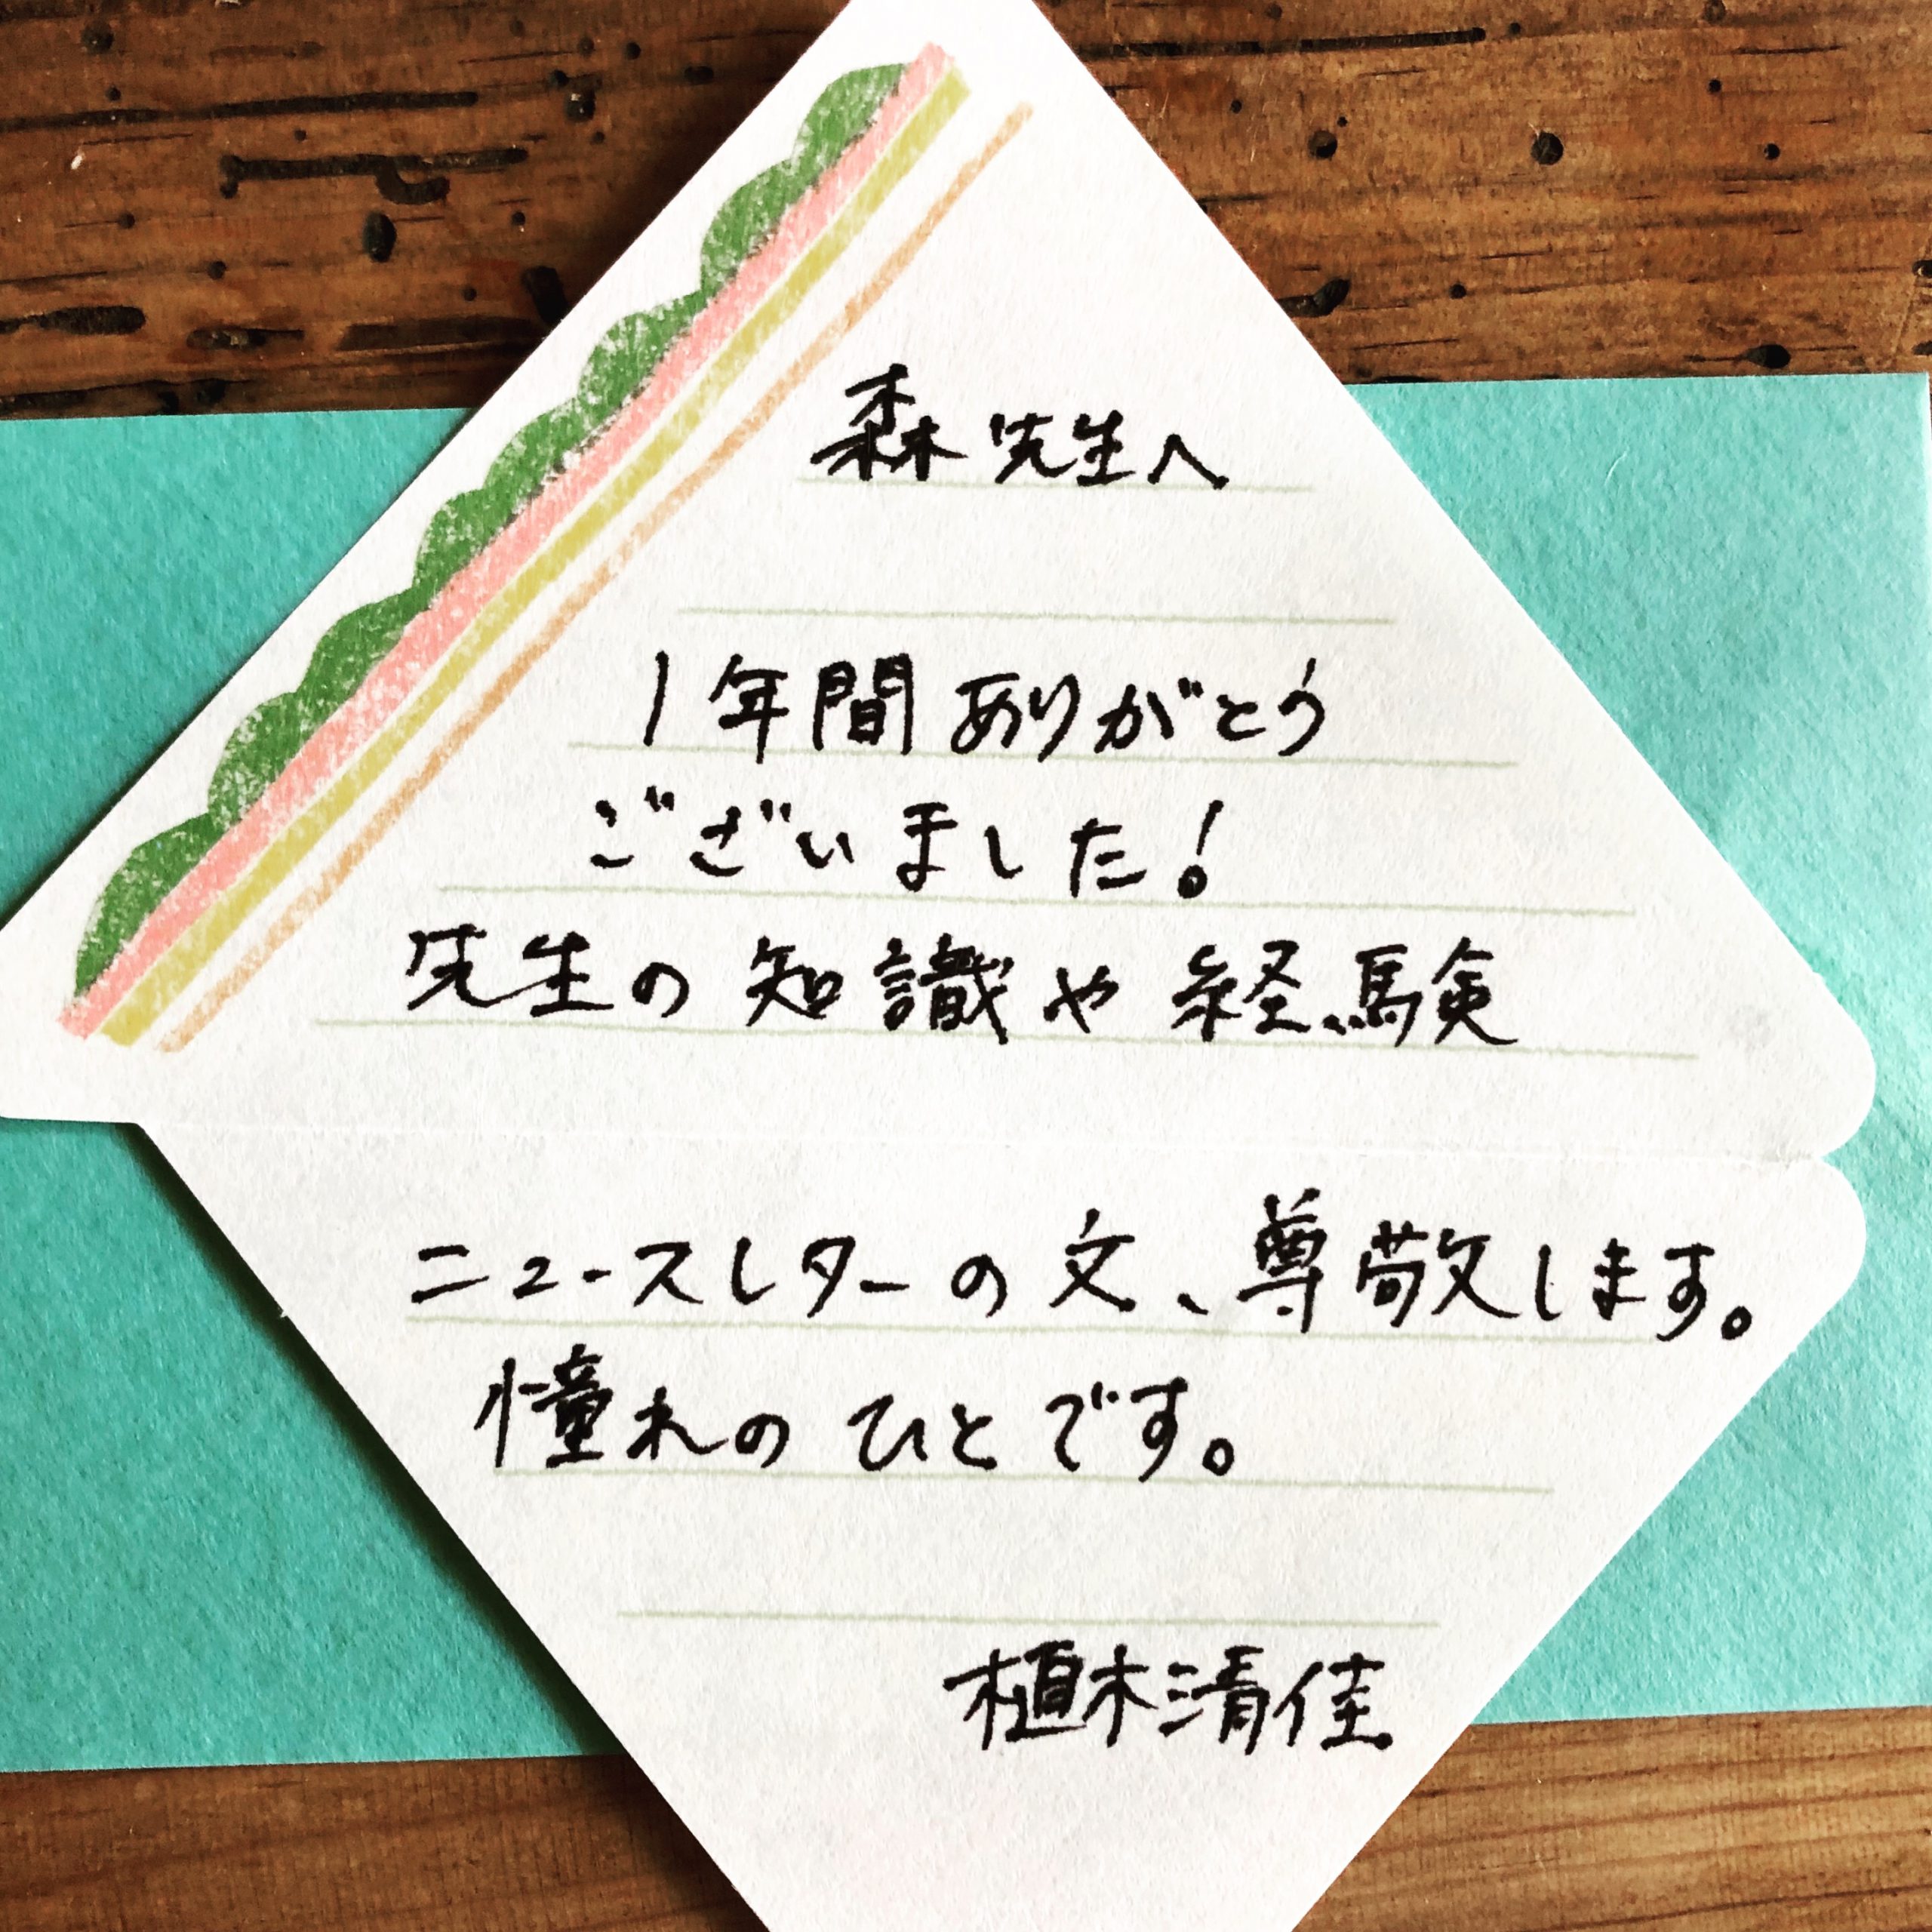 森先生へ
1年間ありがとう
ございました!
先生の知識や経験
ニュースレターの文、尊敬します。
憧れのひとです。
植木清佳